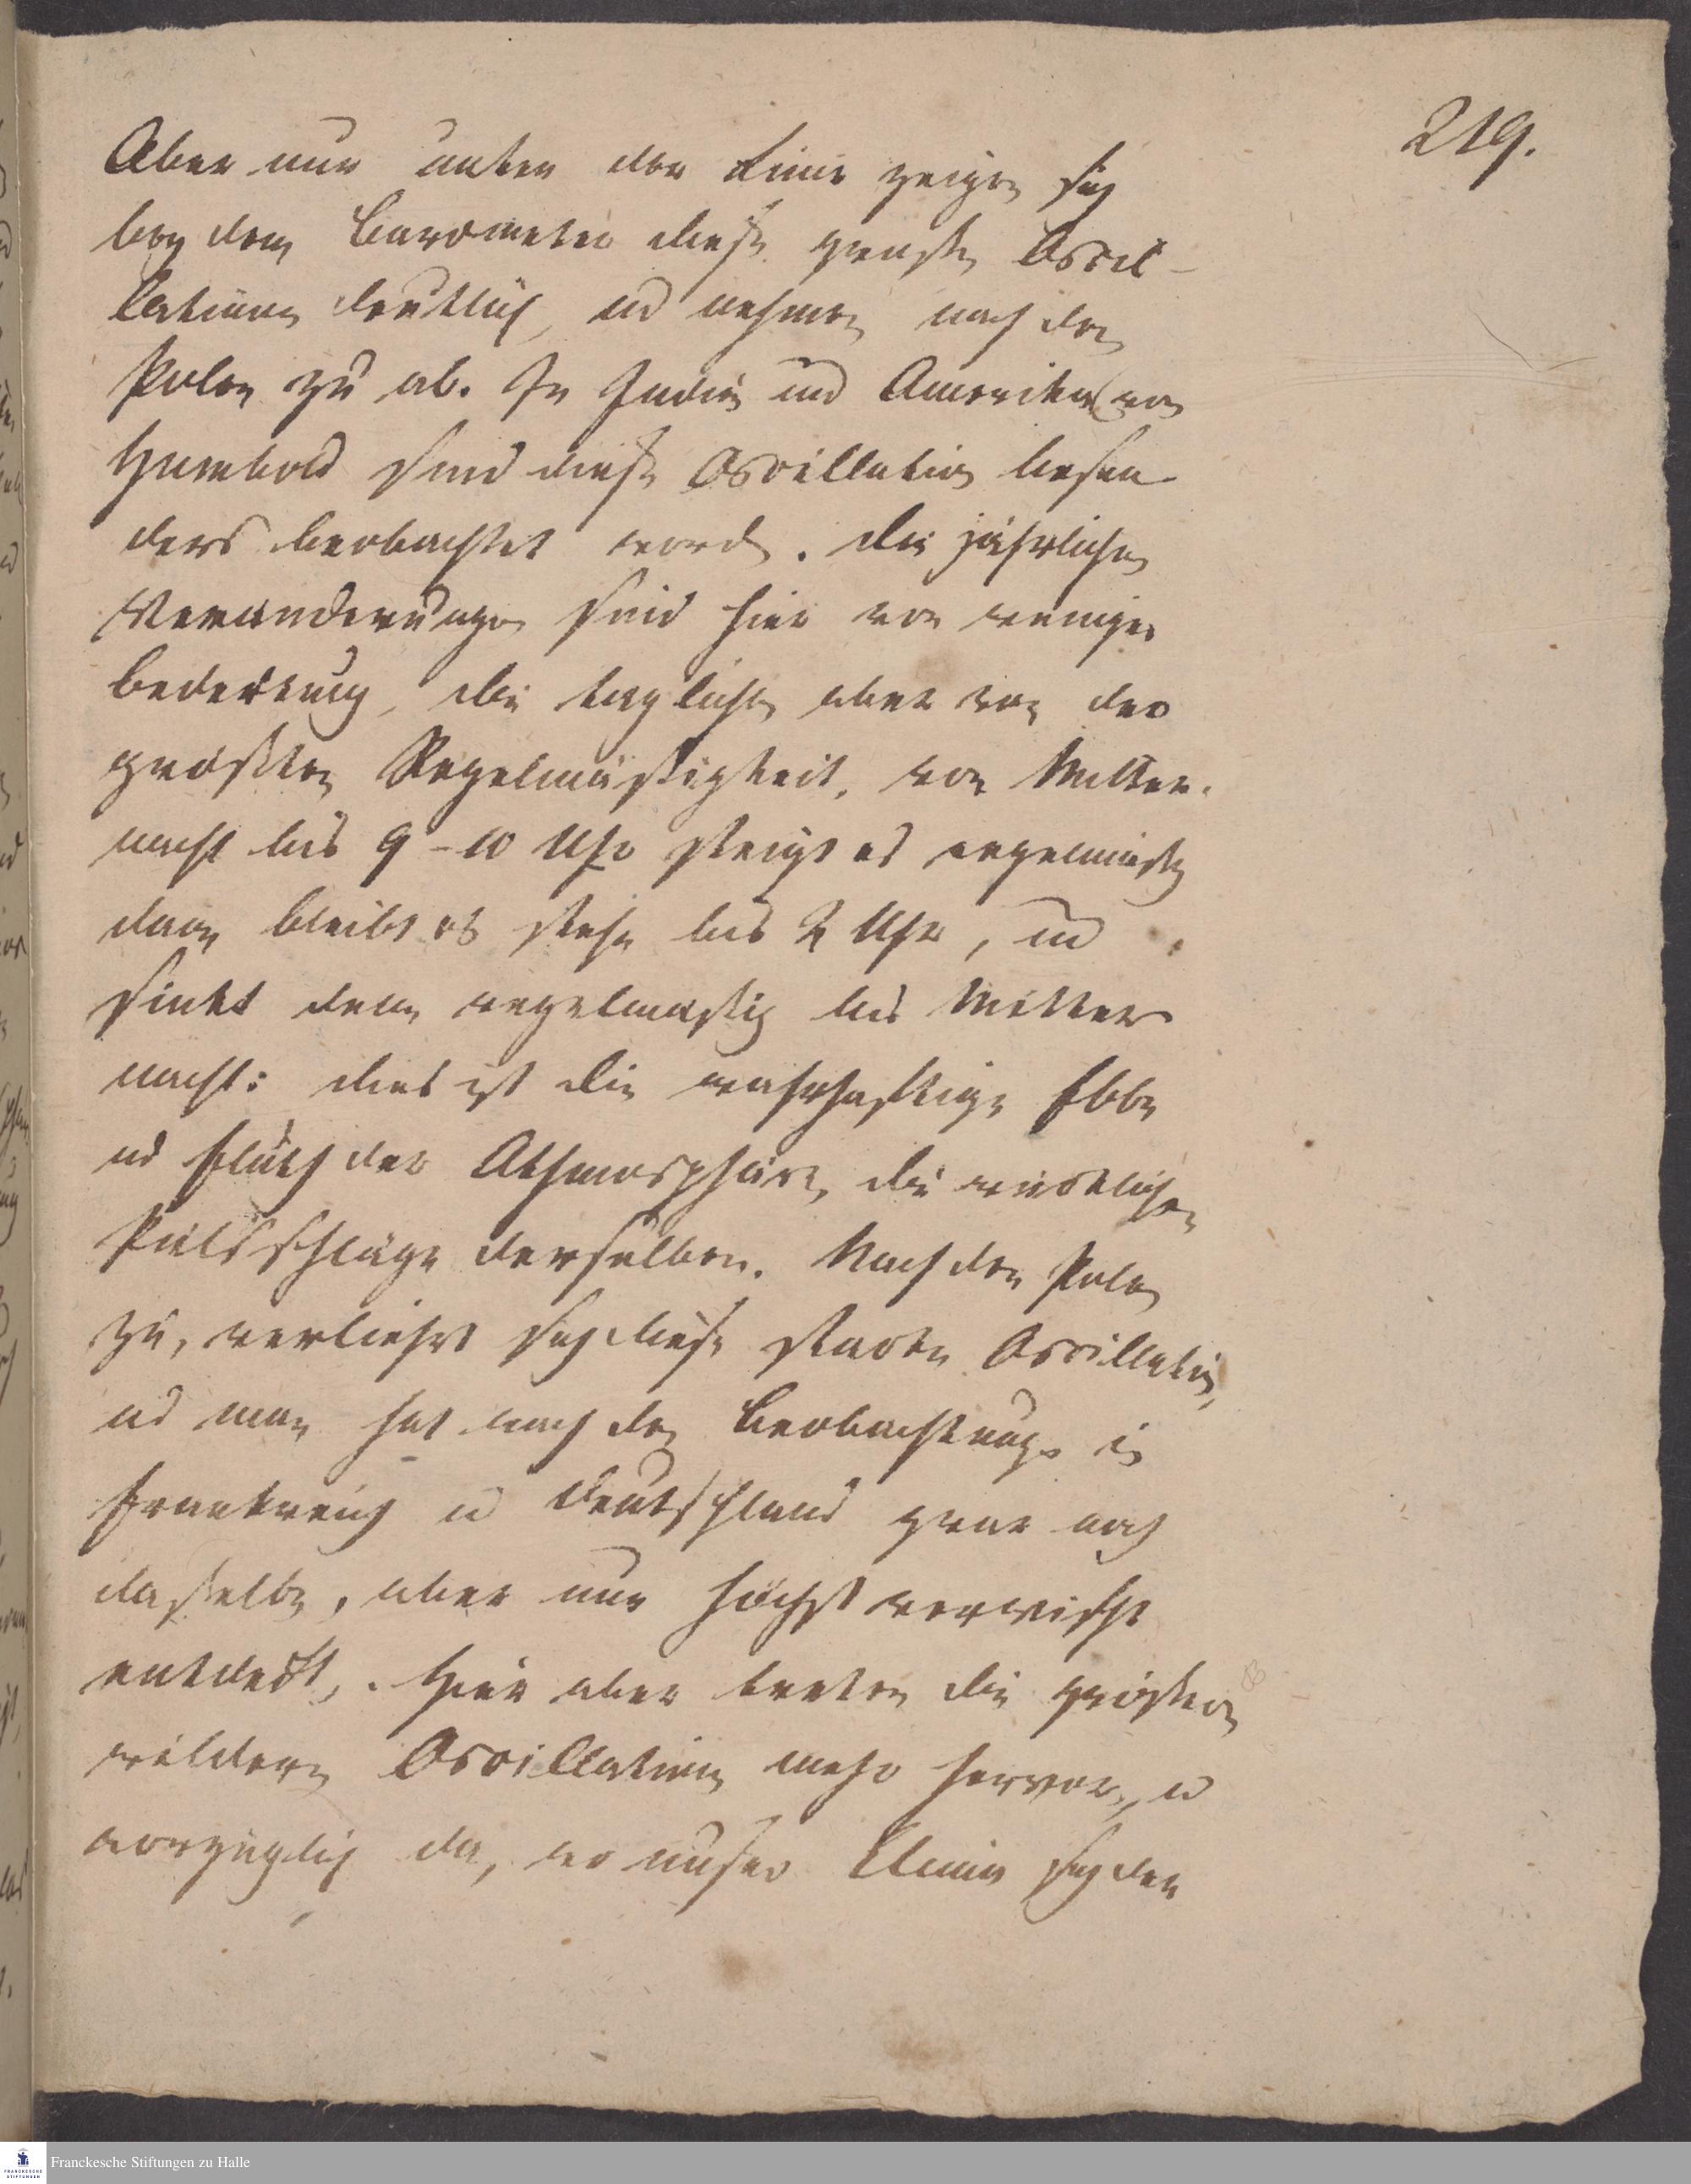 219.
Aber nur unter der Linie zeigen sich
bey dem Barometer diese großen Oscil-
lationen deutlich, und nehmen nach den
Polen zu ab. In Indien und Amerika (von
Humbold sind diese Oscillation beson
ders beobachtet worden. Die jährlichen
Veranderungen sind hier von weniger
Bedeutung, die taglichen aber von der
großten Regelmäßigkeit, von Mitter-
nacht bis 9-10 Uhr steigt es regelmäßig
dann bleibt es stehn bis 2 Uhr, und
sinkt dann regelmaßig bis Mitter
nacht: dies ist die wahrhaftige Ebbe
und Fluth der Athmosphäre, die wirklichen
Pulsschläge derselben. Nach den Polen
zu, verliehrt sich diese starke Oscillation,
und man hat nach den Beobachtungen in
Frankreich und Deutschland zwar noch
dasselbe, aber nur höchst verwischt
entdeckt,. Hier aber treten die größern
wildern Oscillationen mehr hervor, und
vorzüglich da, wo unser Clima sich den
Franckesche Stiftungen zu Halle
FRANCKESCHE
STIFTUNGEN